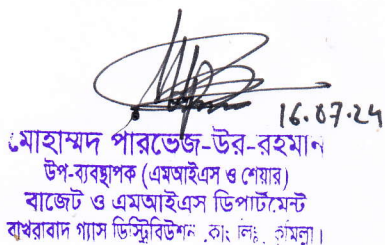 16.07.24
মোহাম্মদ পারভেজ-উর-রহমান
উপ-ব্যবস্থাপক (এমআইএস ও শেয়ার)
বাজেট ও এমআইএস ডিপার্টমেন্ট
বাখরাবাদ গ্যাস ডিস্ট্রিবিউশন কোং লিঃ, কুমিল্লা।